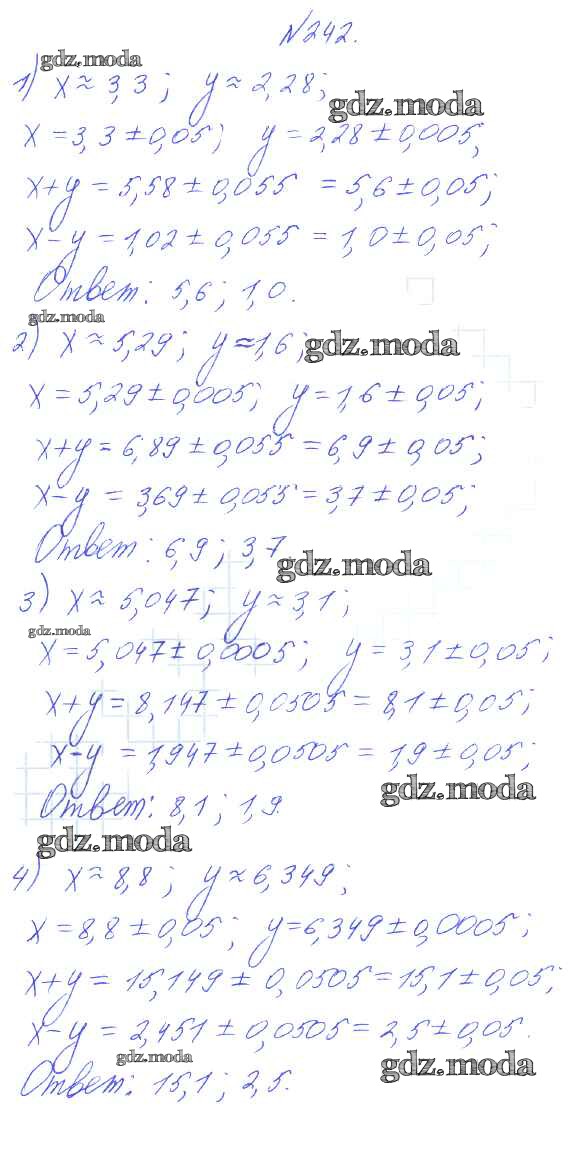 №242.
gdz.moda
1) x ≈ 3,3; y ≈ 2,28;
gdz.moda
x = 3,3 ± 0,05; y = 2,28 ± 0,005;
x+y = 5,58 ± 0,055 = 5,6 ± 0,05;
x-y = 1,02 ± 0,055 = 1,0 ± 0,05;
Ответ: 5,6; 1,0.
gdz.moda
2) x ≈ 5,29; y ≈ 1,6;
gdz.moda
x = 5,29 ± 0,005; y = 1,6 ± 0,05;
x+y = 6,89 ± 0,055 = 6,9 ± 0,05;
x-y = 3,69 ± 0,055 = 3,7 ± 0,05;
Ответ: 6,9; 3,7.
gdz.moda
3) x ≈ 5,047; y ≈ 3,1;
gdz.moda
x = 5,047 ± 0,0005; y = 3,1 ± 0,05;
x+y = 8,147 ± 0,0505 = 8,1 ± 0,05;
x-y = 1,947 ± 0,0505 = 1,9 ± 0,05;
gdz.moda
Ответ: 8,1; 1,9.
gdz.moda
4) x ≈ 8,8; y ≈ 6,349;
x = 8,8 ± 0,05; y = 6,349 ± 0,0005;
x+y = 15,149 ± 0,0505 = 15,1 ± 0,05;
x-y = 2,451 ± 0,0505 = 2,5 ± 0,05.
gdz.moda
gdz.moda
Ответ: 15,1; 2,5.